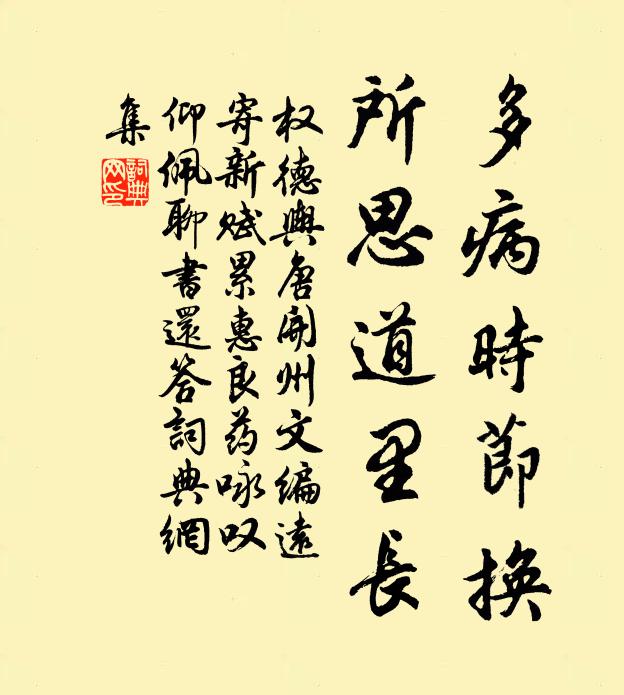 多病時節換
所思道里長
权德輿唐開州文编遠
寄新赋累惠良药咏叹
仰佩聊書還答詞典網
集
詞典
网印